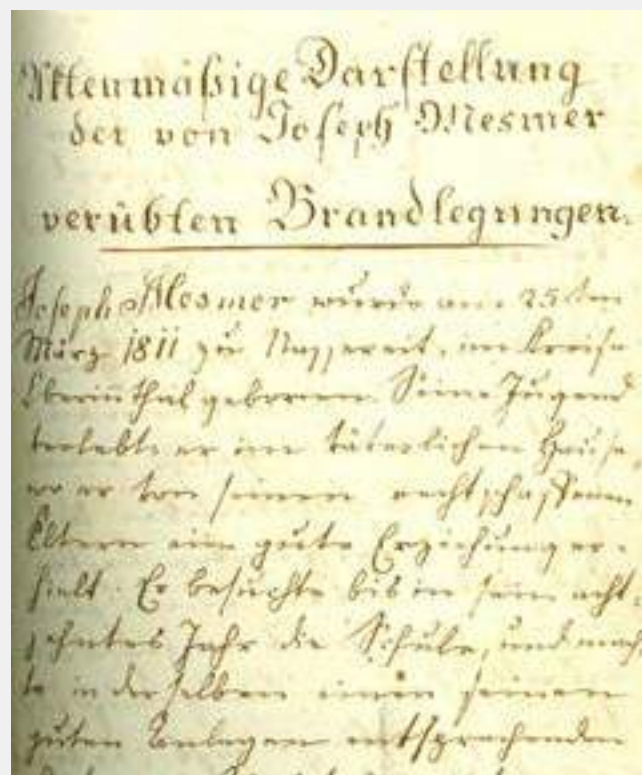 Aktenmäßige Darstellung
der von Joseph Mesmer
verübten Brandlegungen.
Joseph Mesmer wurde am 25sten
März 1811 zu Nassereit, im Kreise
Oberinnthal geboren. Seine Jugend
verlebte er im väterlichen Hause,
wo er von seinen rechtschaffenen
Eltern eine gute Erziehung er-
hielt. Er besuchte bis in sein acht
zehntes Jahr die Schule, und mach
te in derselben einen seinen
guten Anlagen entsprechenden